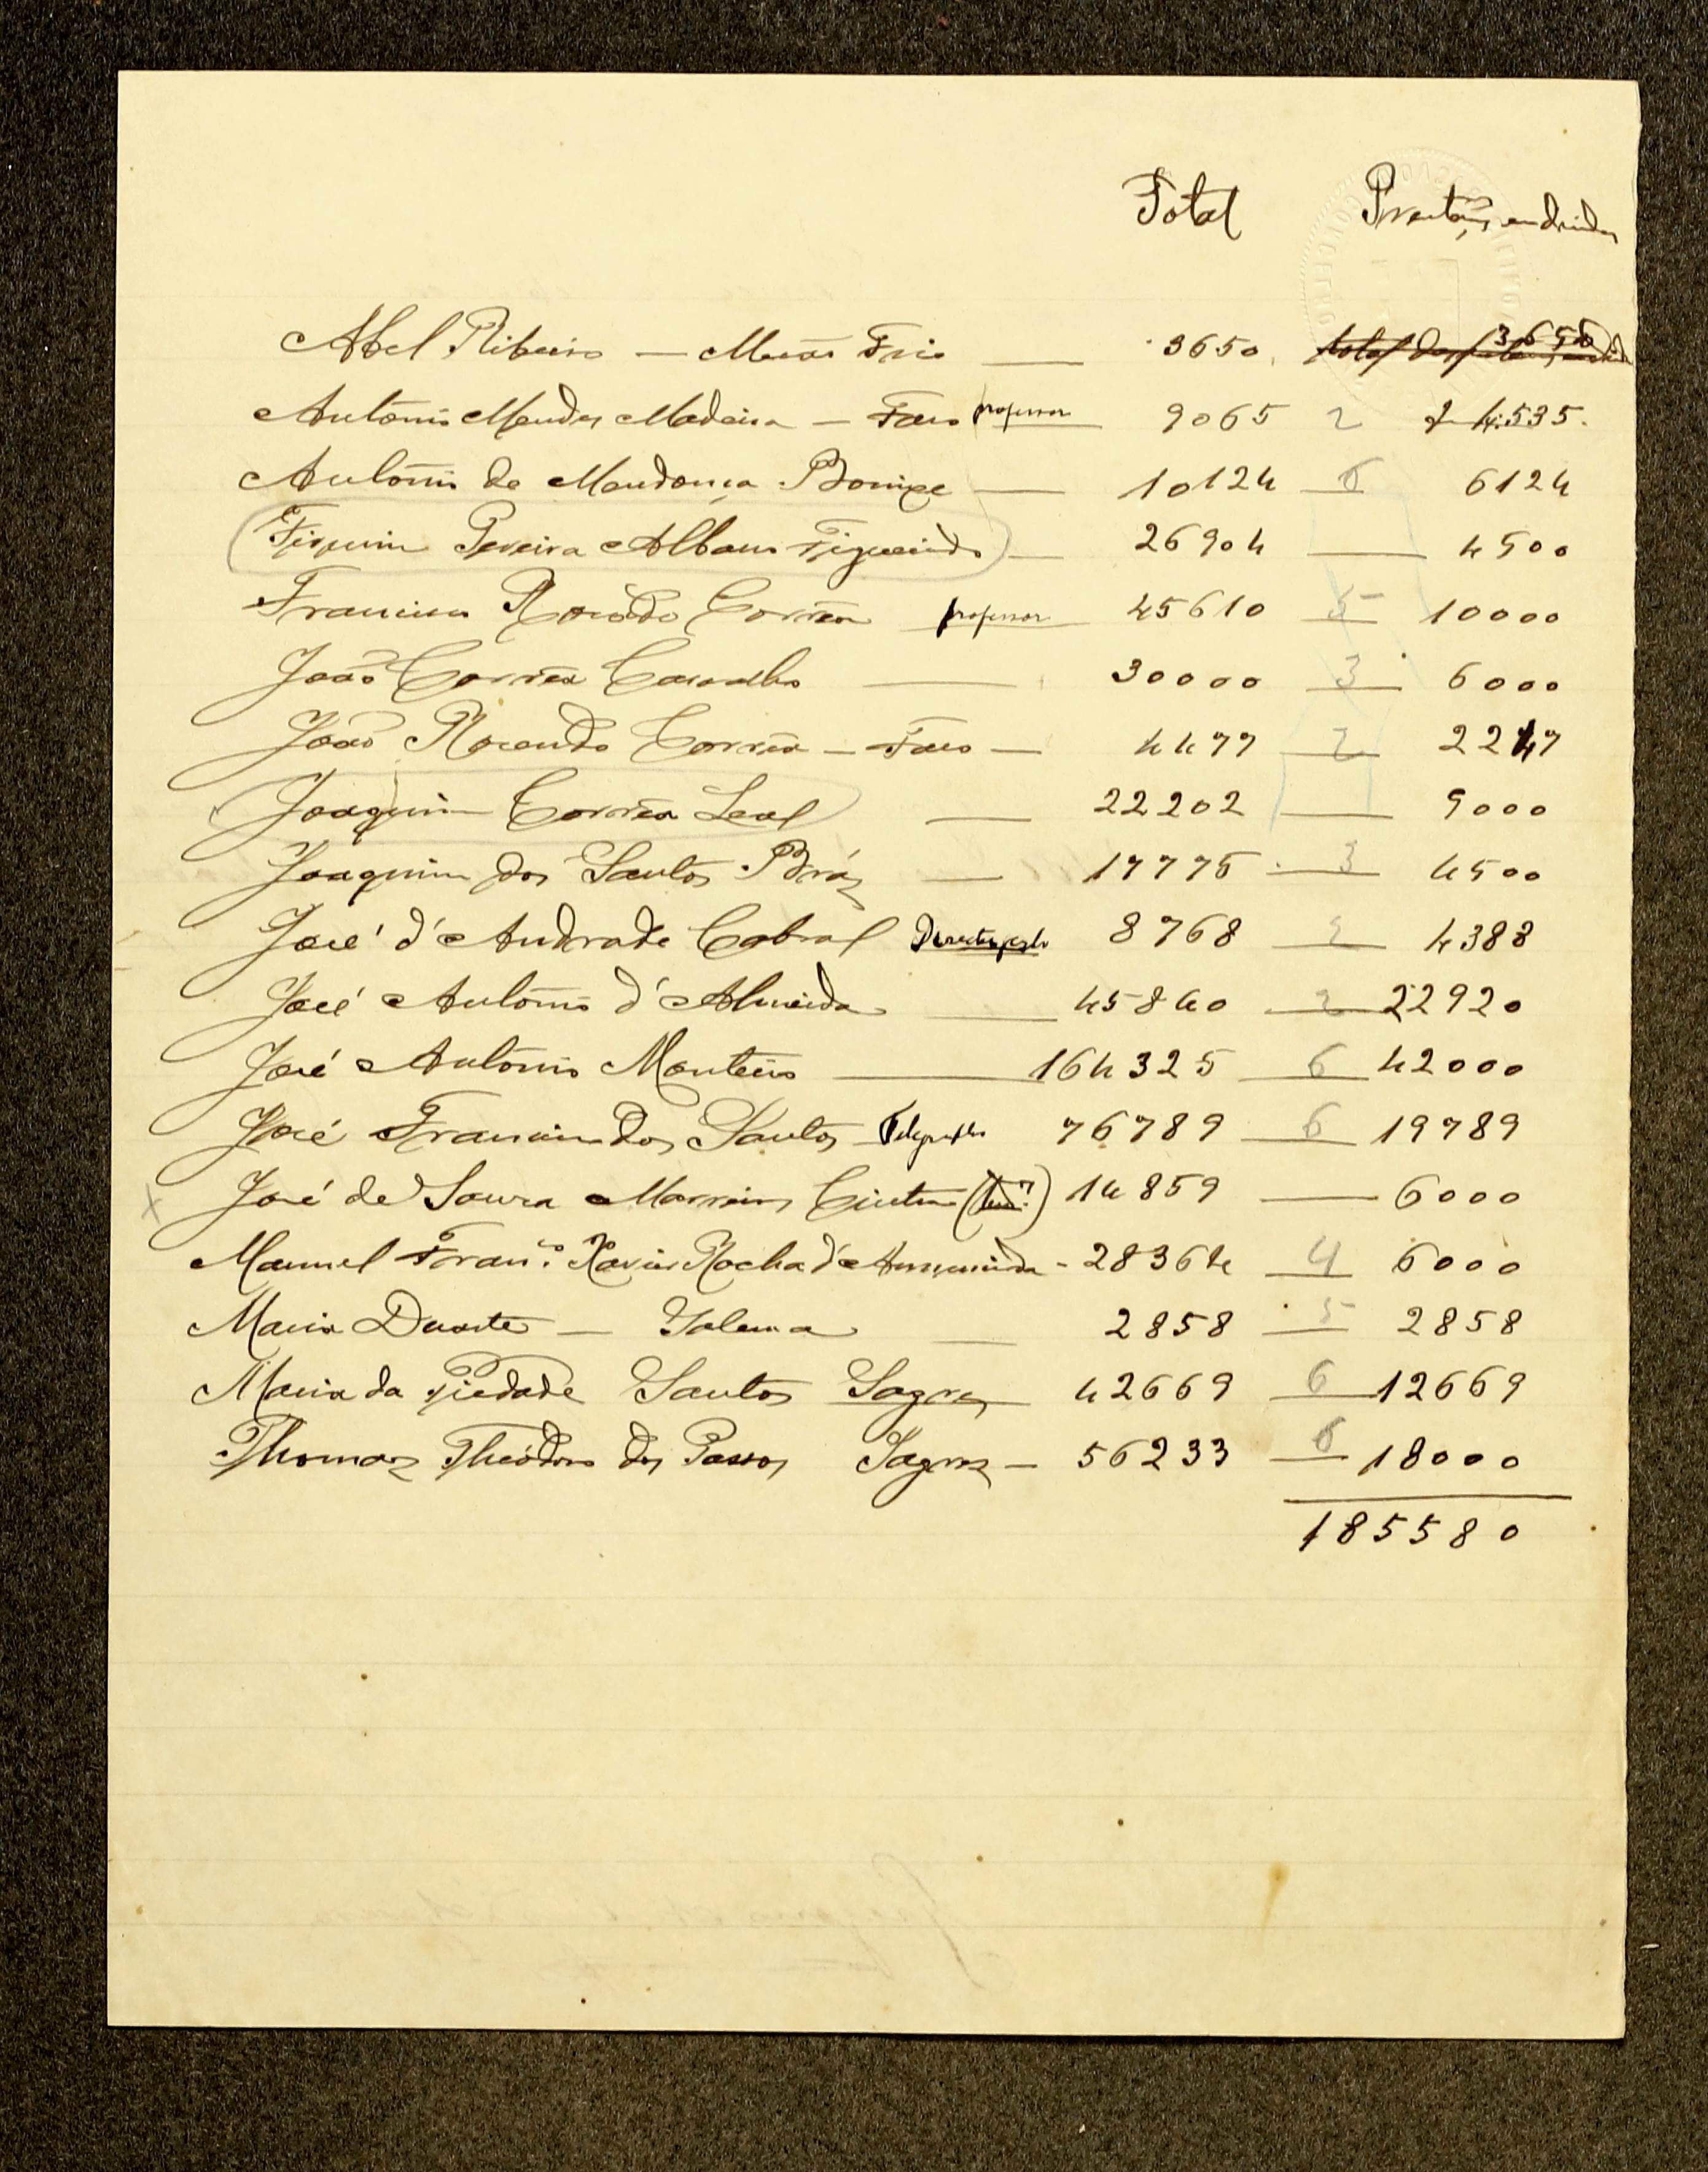 Total Prestações em dívida
Abel Ribeiro — 3650 3650
António Mendes Madeira — Faro professor 9065 2 4.535.
António de Mendonça — 10124 6 6124
Pereira Figueiredo — 26904 — 4500
Francisco Rosado Corrêa professor 45610 5 10000
João Corrêa Carvalho — 30000 3 6000
João Rosendo Corrêa — Faro — 4477 2 2247
Joaquim Corrêa Leal — 22202 — 9000
Joaquim dos Santos Bráz — 17775 3 4500
José d'Andrade Cabral 8768 2 4388
José António d'Almeida — 45840 2 22920
José António Monteiro — 164325 6 42000
José Francisco dos Santos — 76789 6 19789
José de Sousa 14859 — 6000
Manuel Fran.co Xavier Rocha d' - 28364 4 6000
Maria Duarte — Salema — 2858 5 2858
Maria da Piedade Santos Sagres 42669 6 12669
Thomaz Theódoro dos Passos Sagres — 56233 6 18000
185580